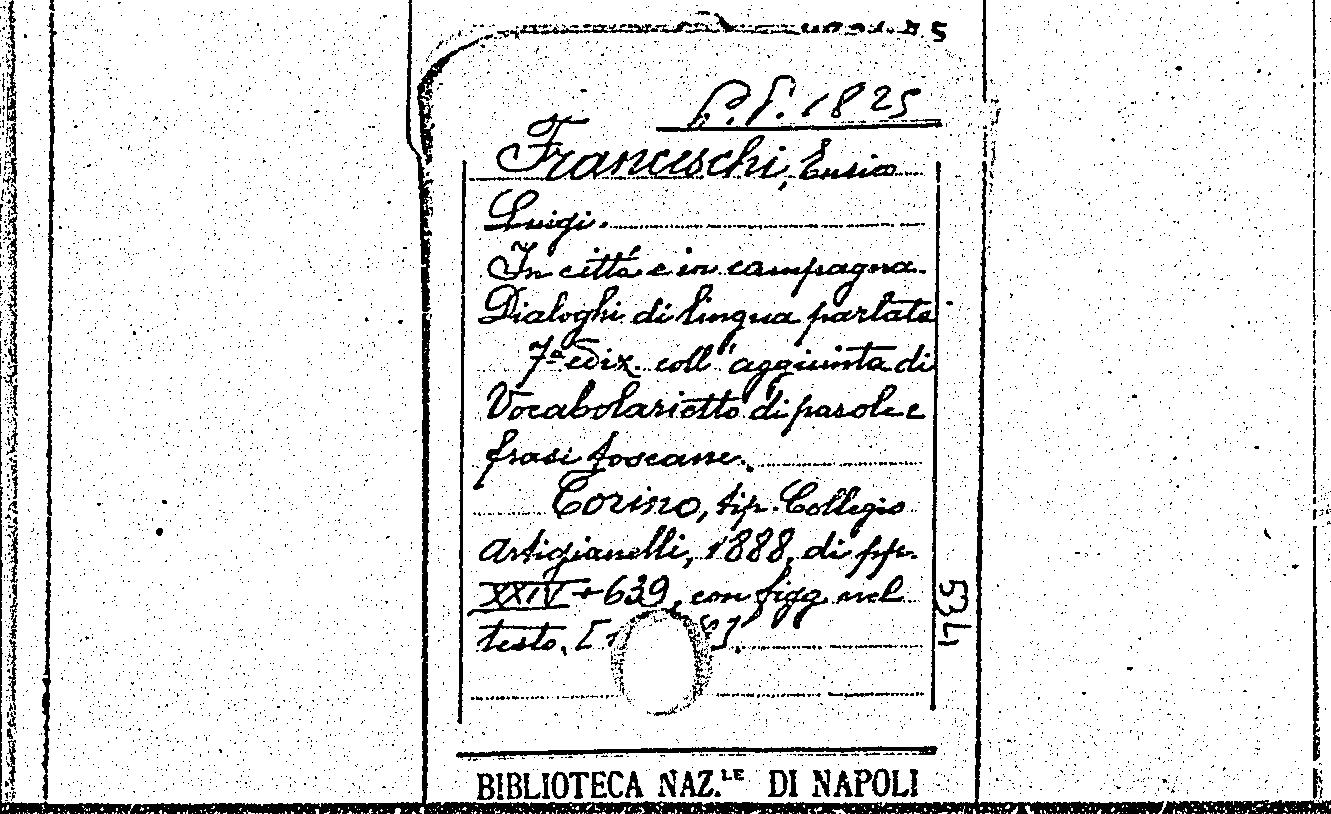 1825
Franceschi, Enrico
Luigi.
In città e in campagna.
Dialoghi di lingua parlata
7ª ediz. coll'aggiunta di
Vocabolarietto di parole e
frasi toscane.
Torino, tip. Collegio
Artigianelli, 1888, di pp.
XXIV+639, con figg nel
testo.
534
BIBLIOTECA NAZ.LE DI NAPOLI